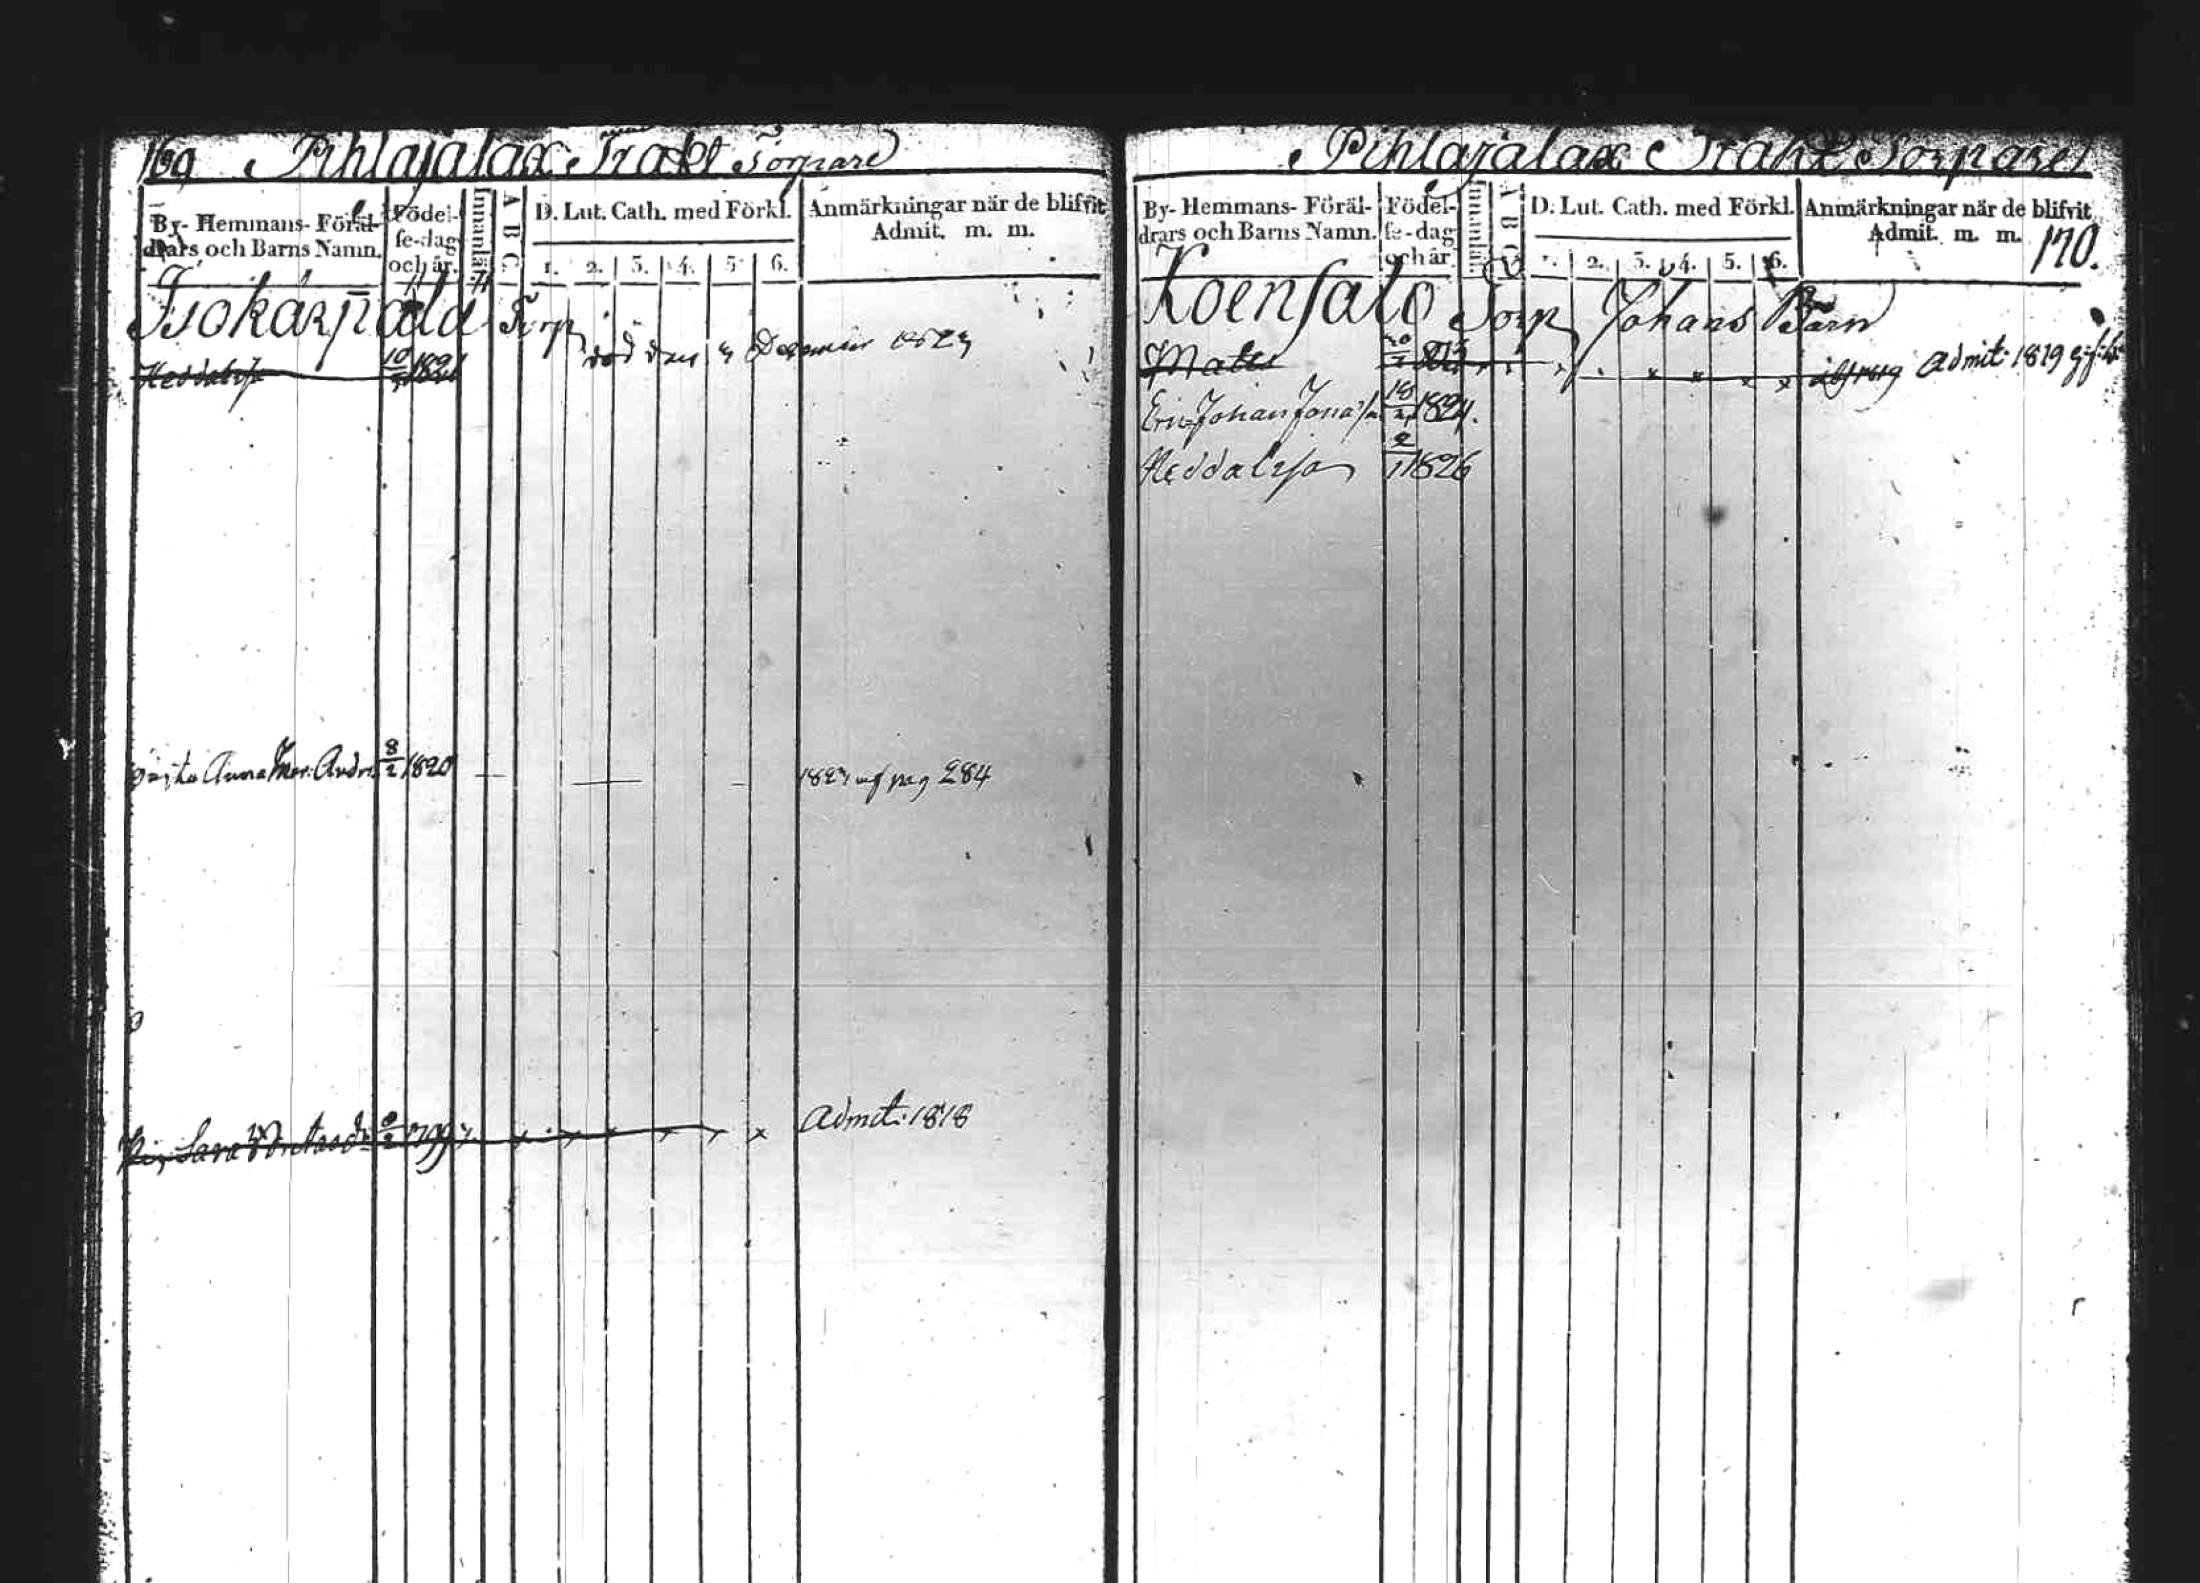 169 Pihlajalax Trakt Torpare
By- Hemmans- Föräl-
drars och Barns Namn.
Födel-
se-dag
och år.
Innanläs.
A B C
D. Lut. Cath. med Förkl.
1. 2. 3. 4. 5 6.
Anmärkningar när de blifvit
Admit. m. m.
Isokárpälä Torp
död den December
Heddalisa 10 1821
Anna Andr. 8/2 1820 — — — pag 284
Sara 1799 x x x Admit: 1818
Pihlajalax Trakt Torpare
By- Hemmans- Föräl-
drars och Barns Namn.
Födel-
se-dag
och år
Innanläs.
A B C
D. Lut. Cath. med Förkl.
1. 2. 3. 4. 5. 6.
Anmärkningar när de blifvit
Admit. m. m.
170.
Koensalo Torp Johans Barn
Mats x x x x Admit: 1819
Eric Johan Jonas 18 1824.
Heddalisa 2/1 1826